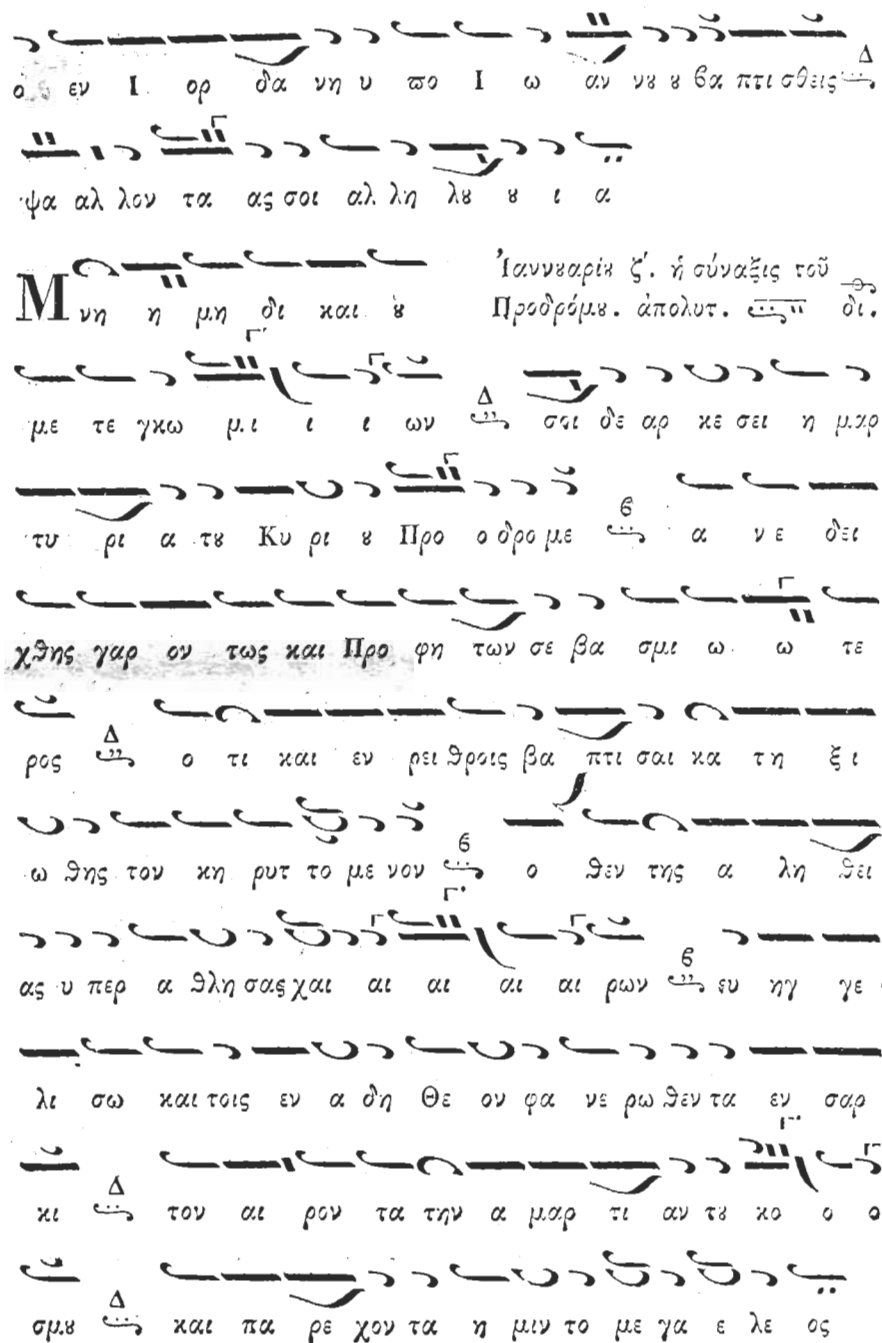 ο εν Ι ορ δα νη υ πο Ι ω αν νȣ ȣ βα πτι σθεις Δ
ψα αλ λον τα ας σοι αλ λη λȣ ȣ ι α
Μνη η μη δι και ȣ
Ἰαννȣαρίȣ ζ΄. ἡ σύναξις τοῦ
Προδρόμȣ. ἀπολυτ. δι.
με τε γκω μι ι ι ων Δ σοι δε αρ κε σει η μαρ
τυ ρι α τȣ Κυ ρι ȣ Προ ο δρο με ϐ α νε δει
χθης γαρ ον τως και Προ φη των σε βα σμι ω ω τε
ρος Δ ο τι και εν ρει θροις βα πτι σαι κα τη ξι
ω θης τον κη ρυτ το με νον ϐ ο θεν της α λη θει
ας υ περ α θλη σας χαι αι αι αι αι ρων ϐ ευ ηγ γε
λι σω και τοις εν α δη Θε ον φα νε ρω θεν τα εν σαρ
κι Δ τον αι ρον τα την α μαρ τι αν τȣ κο ο ο
σμȣ Δ και πα ρε χον τα η μιν το με γα ε λε ος